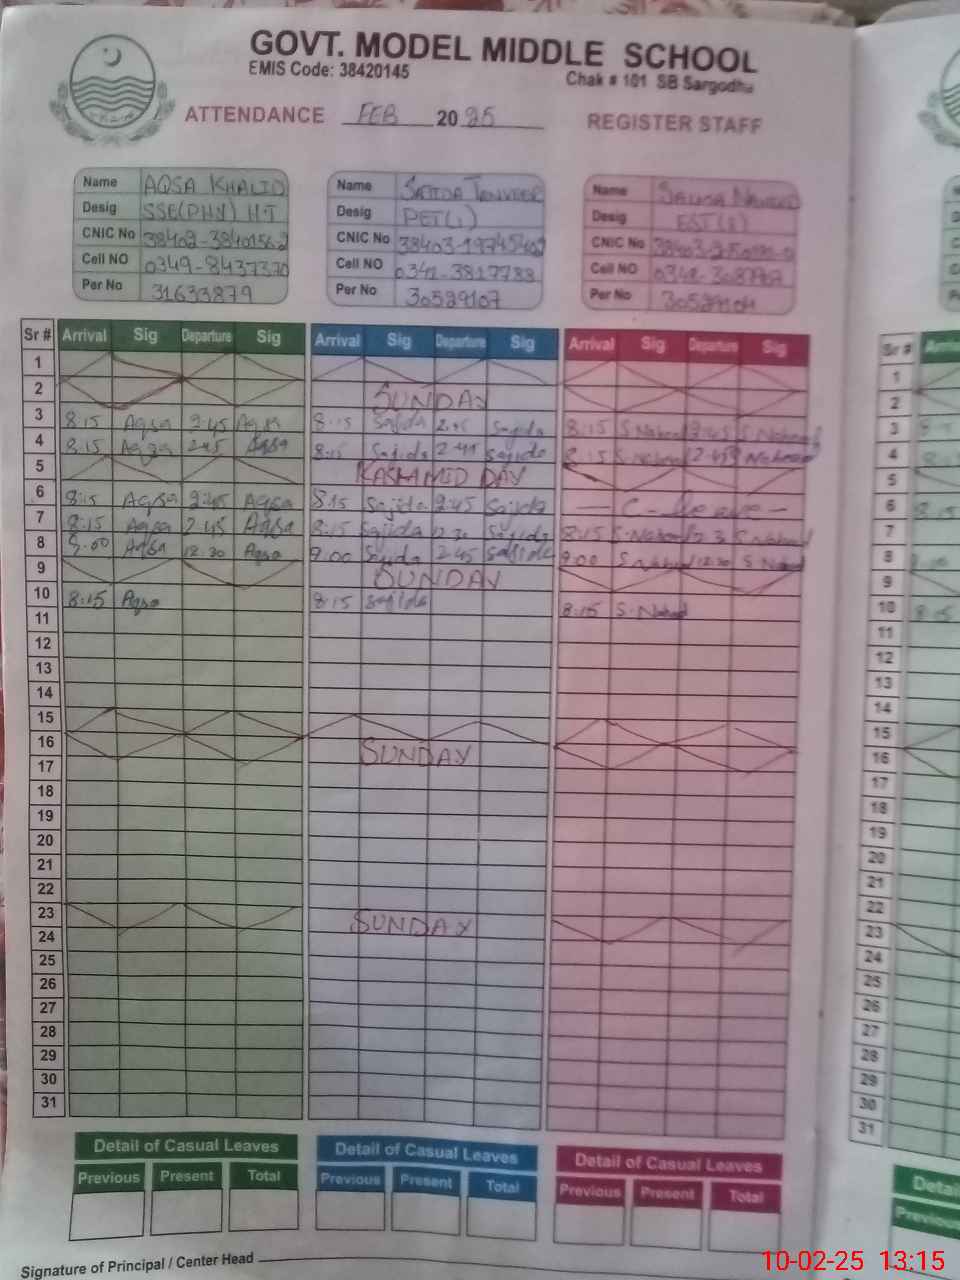 GOVT. MODEL MIDDLE SCHOOL
EMIS Code: 38420145
Chak # 101 SB Sargodha
ATTENDANCE FEB 2025 REGISTER STAFF
Name AQSA KHALID Name SAJIDA TANVEER Name
Desig SSE(PHY) HT Desig PET(1) Desig EST(S)
CNIC No CNIC No CNIC No
Cell NO 0349-8437370 Cell NO Cell NO
Per No 31633879 Per No 30529107 Per No
Sr # Arrival Sig Departure Sig Arrival Sig Departure Sig Arrival Sig Departure Sig Sr #
1 1
2 SUNDAY 2
3 8:15 Aqsa 2:45 Aqsa 8:15 Sajida 2:45 Sajida 8:15 S.Naheed 2:45 S.Naheed 3
4 8:15 Aqsa 2:45 Aqsa 8:15 Sajida Sajida 8:15 S.Naheed 2:45 4
5 DAY 5
6 8:15 Aqsa 2:45 Aqsa 8:15 Sajida 2:45 Sajida C-leave 6 8:15
7 8:15 Aqsa 2:45 Aqsa 8:15 Sajida Sajida 8:15 S.Naheed S.Naheed 7
8 9:00 Aqsa 12:30 Aqsa 9:00 Sajida 2:45 Sajida 9:00 S.Naheed 12:30 S.Naheed 8
9 SUNDAY 9
10 8:15 Aqsa 8:15 Sajida 8:15 S.Naheed 10 8:15
11 11
12 12
13 13
14 14
15 15
16 SUNDAY 16
17 17
18 18
19 19
20 20
21 21
22 22
23 SUNDAY 23
24 24
25 25
26 26
27 27
28 28
29 29
30 30
31 31
Detail of Casual Leaves Detail of Casual Leaves Detail of Casual Leaves
Previous Present Total Previous Present Total Previous Present Total
Signature of Principal / Center Head
10-02-25 13:15